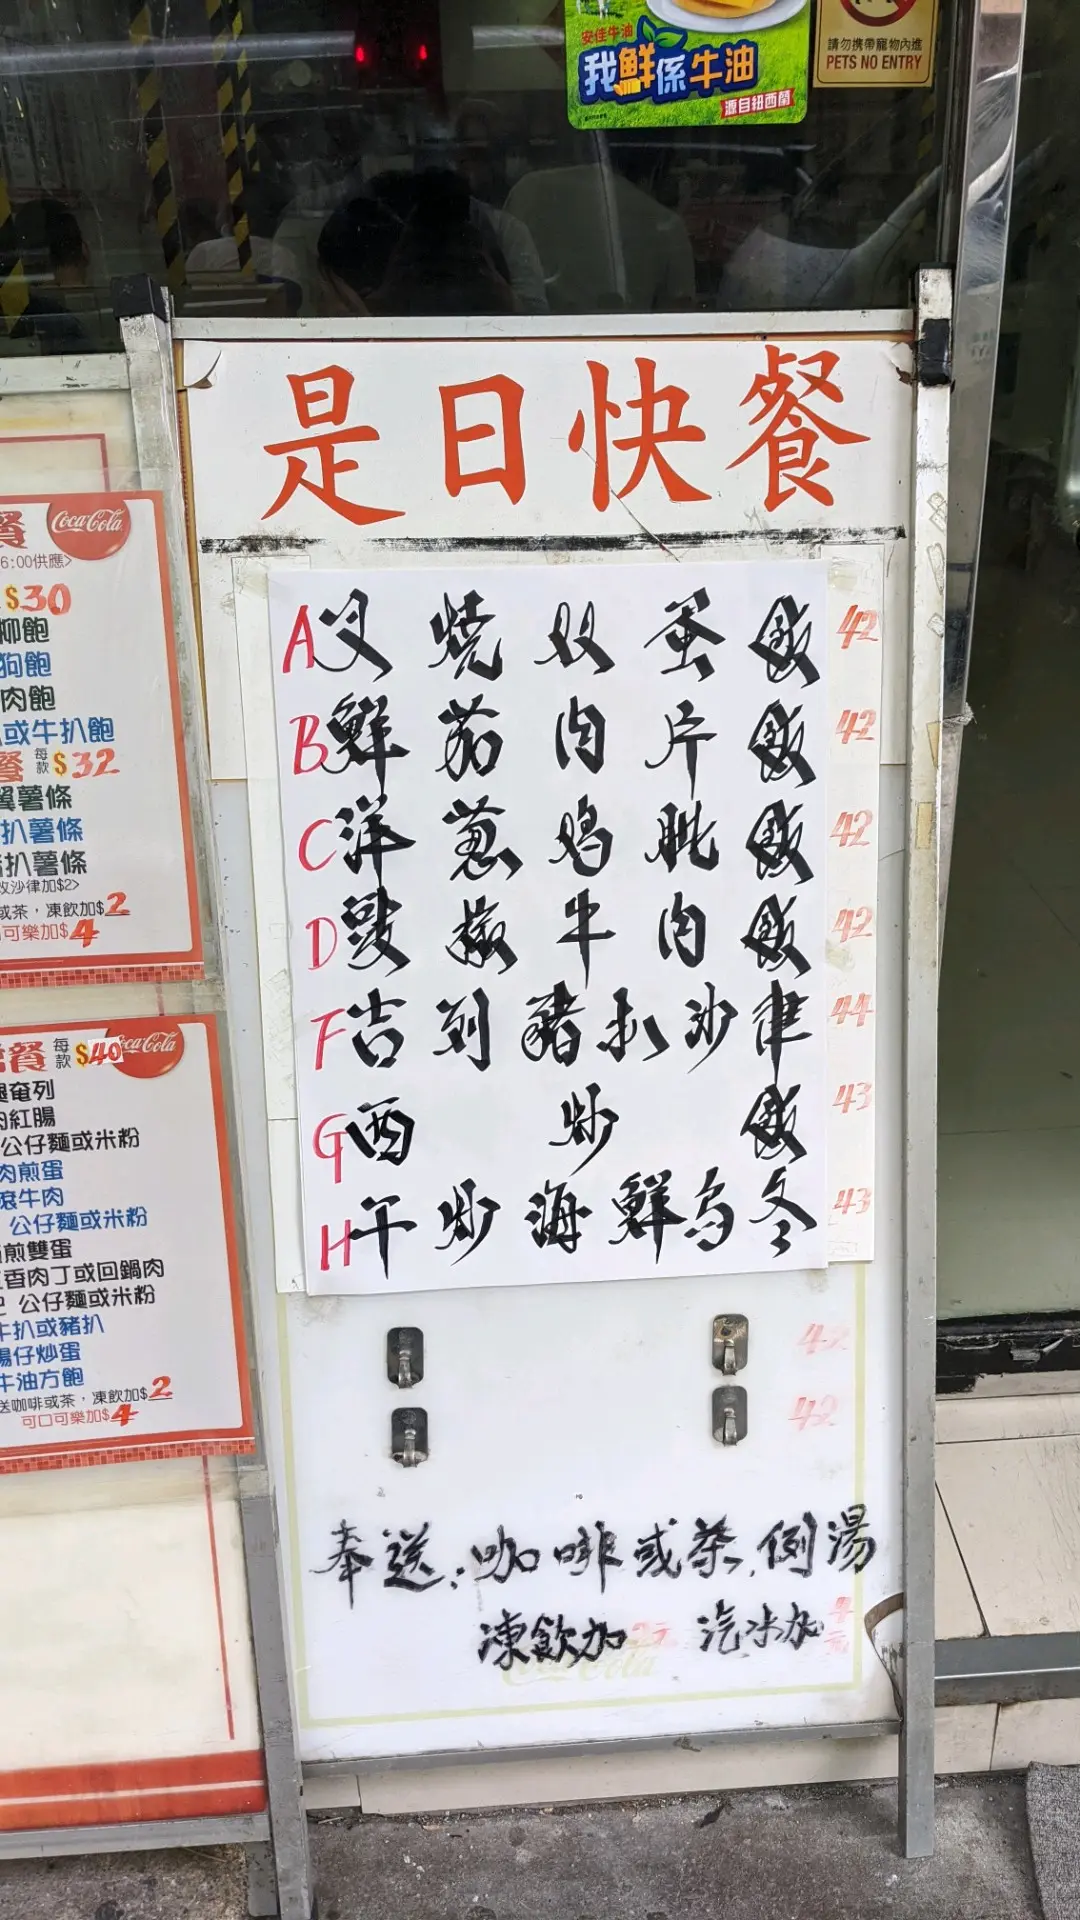 安佳牛油
我鮮係牛油
源自紐西蘭
請勿攜帶寵物內進
PETS NO ENTRY
是日快餐
A 叉燒双蛋飯 42
B 鮮茄肉片飯 42
C 洋葱鸡扒飯 42
D 豉椒牛肉飯 42
F 吉列豬扒沙律 44
G 西炒飯 43
H 干炒海鮮乌冬 43
42
42
奉送:咖啡或茶,例湯
凍飲加2元 汽水加4元
Coca-Cola
餐 Coca-Cola
6:00供應>
$30
柳飽
狗飽
肉飽
或牛扒飽
餐 每款 $32
翼薯條
扒薯條
扒薯條
改沙律加$2>
或茶,凍飲加$2
可樂加$4
餐 每款 $40 Coca-Cola
奄列
肉紅腸
公仔麵或米粉
肉煎蛋
滾牛肉
公仔麵或米粉
煎雙蛋
香肉丁或回鍋肉
公仔麵或米粉
牛扒或豬扒
腸仔炒蛋
牛油方飽
送咖啡或茶,凍飲加$2
可口可樂加$4